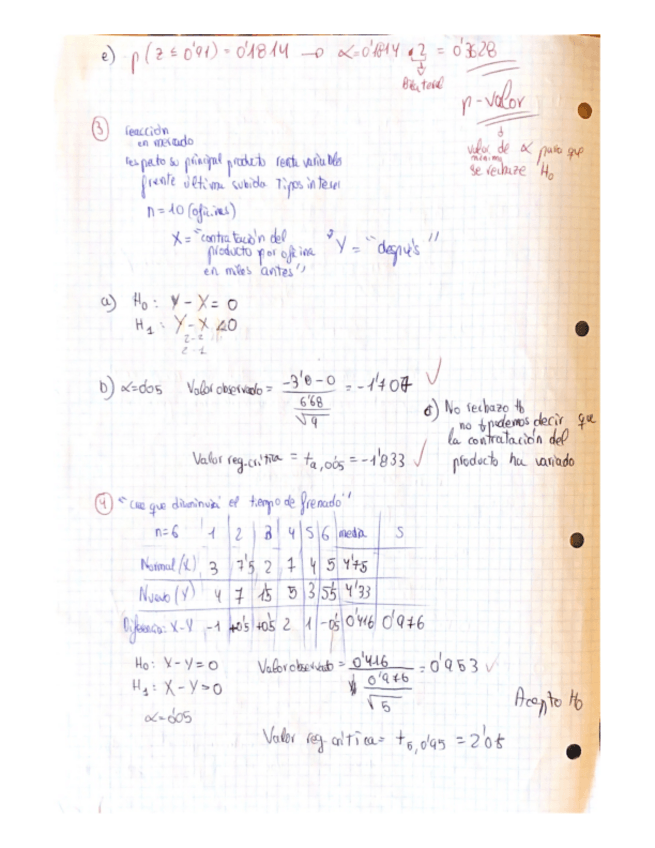 e) p(z ≤ 0'91) = 0'1814 → α = 0'1814 · 2 = 0'3628
Bilateral
p-valor
valor de α para que
mínimo
se rechaze H₀
③ reacción
en mercado
respecto su principal producto renta variables
frente última subida Tipos interes
n = 10 (oficinas)
X = "contratación del
producto por oficina
en miles antes"
Y = "después"
a) H₀: Y - X = 0
H₁: Y - X < 0
b) α = 0'05 Valor observado = -3'0 - 0 / 6'68 / √9 = -1'407
Valor reg. crítica = t9, 0'05 = -1'833
c) No rechazo H₀
no podemos decir que
la contratación del
producto ha variado
④ "Cree que disminuirá el tiempo de frenado"
n=6 1 2 3 4 5 6 media S
Normal (X) 3 7'5 2 7 4 5 4'75
Nuevo (Y) 4 7 1'5 5 3 5'5 4'33
Diferencia: X-Y -1 +0'5 +0'5 2 1 -0'5 0'416 0'976
H₀: X - Y = 0
H₁: X - Y > 0
α = 0'05
Valor observado = 0'416 / 0'976 / √5 = 0'953
Acepto H₀
Valor reg. crítica = t5, 0'95 = 2'05